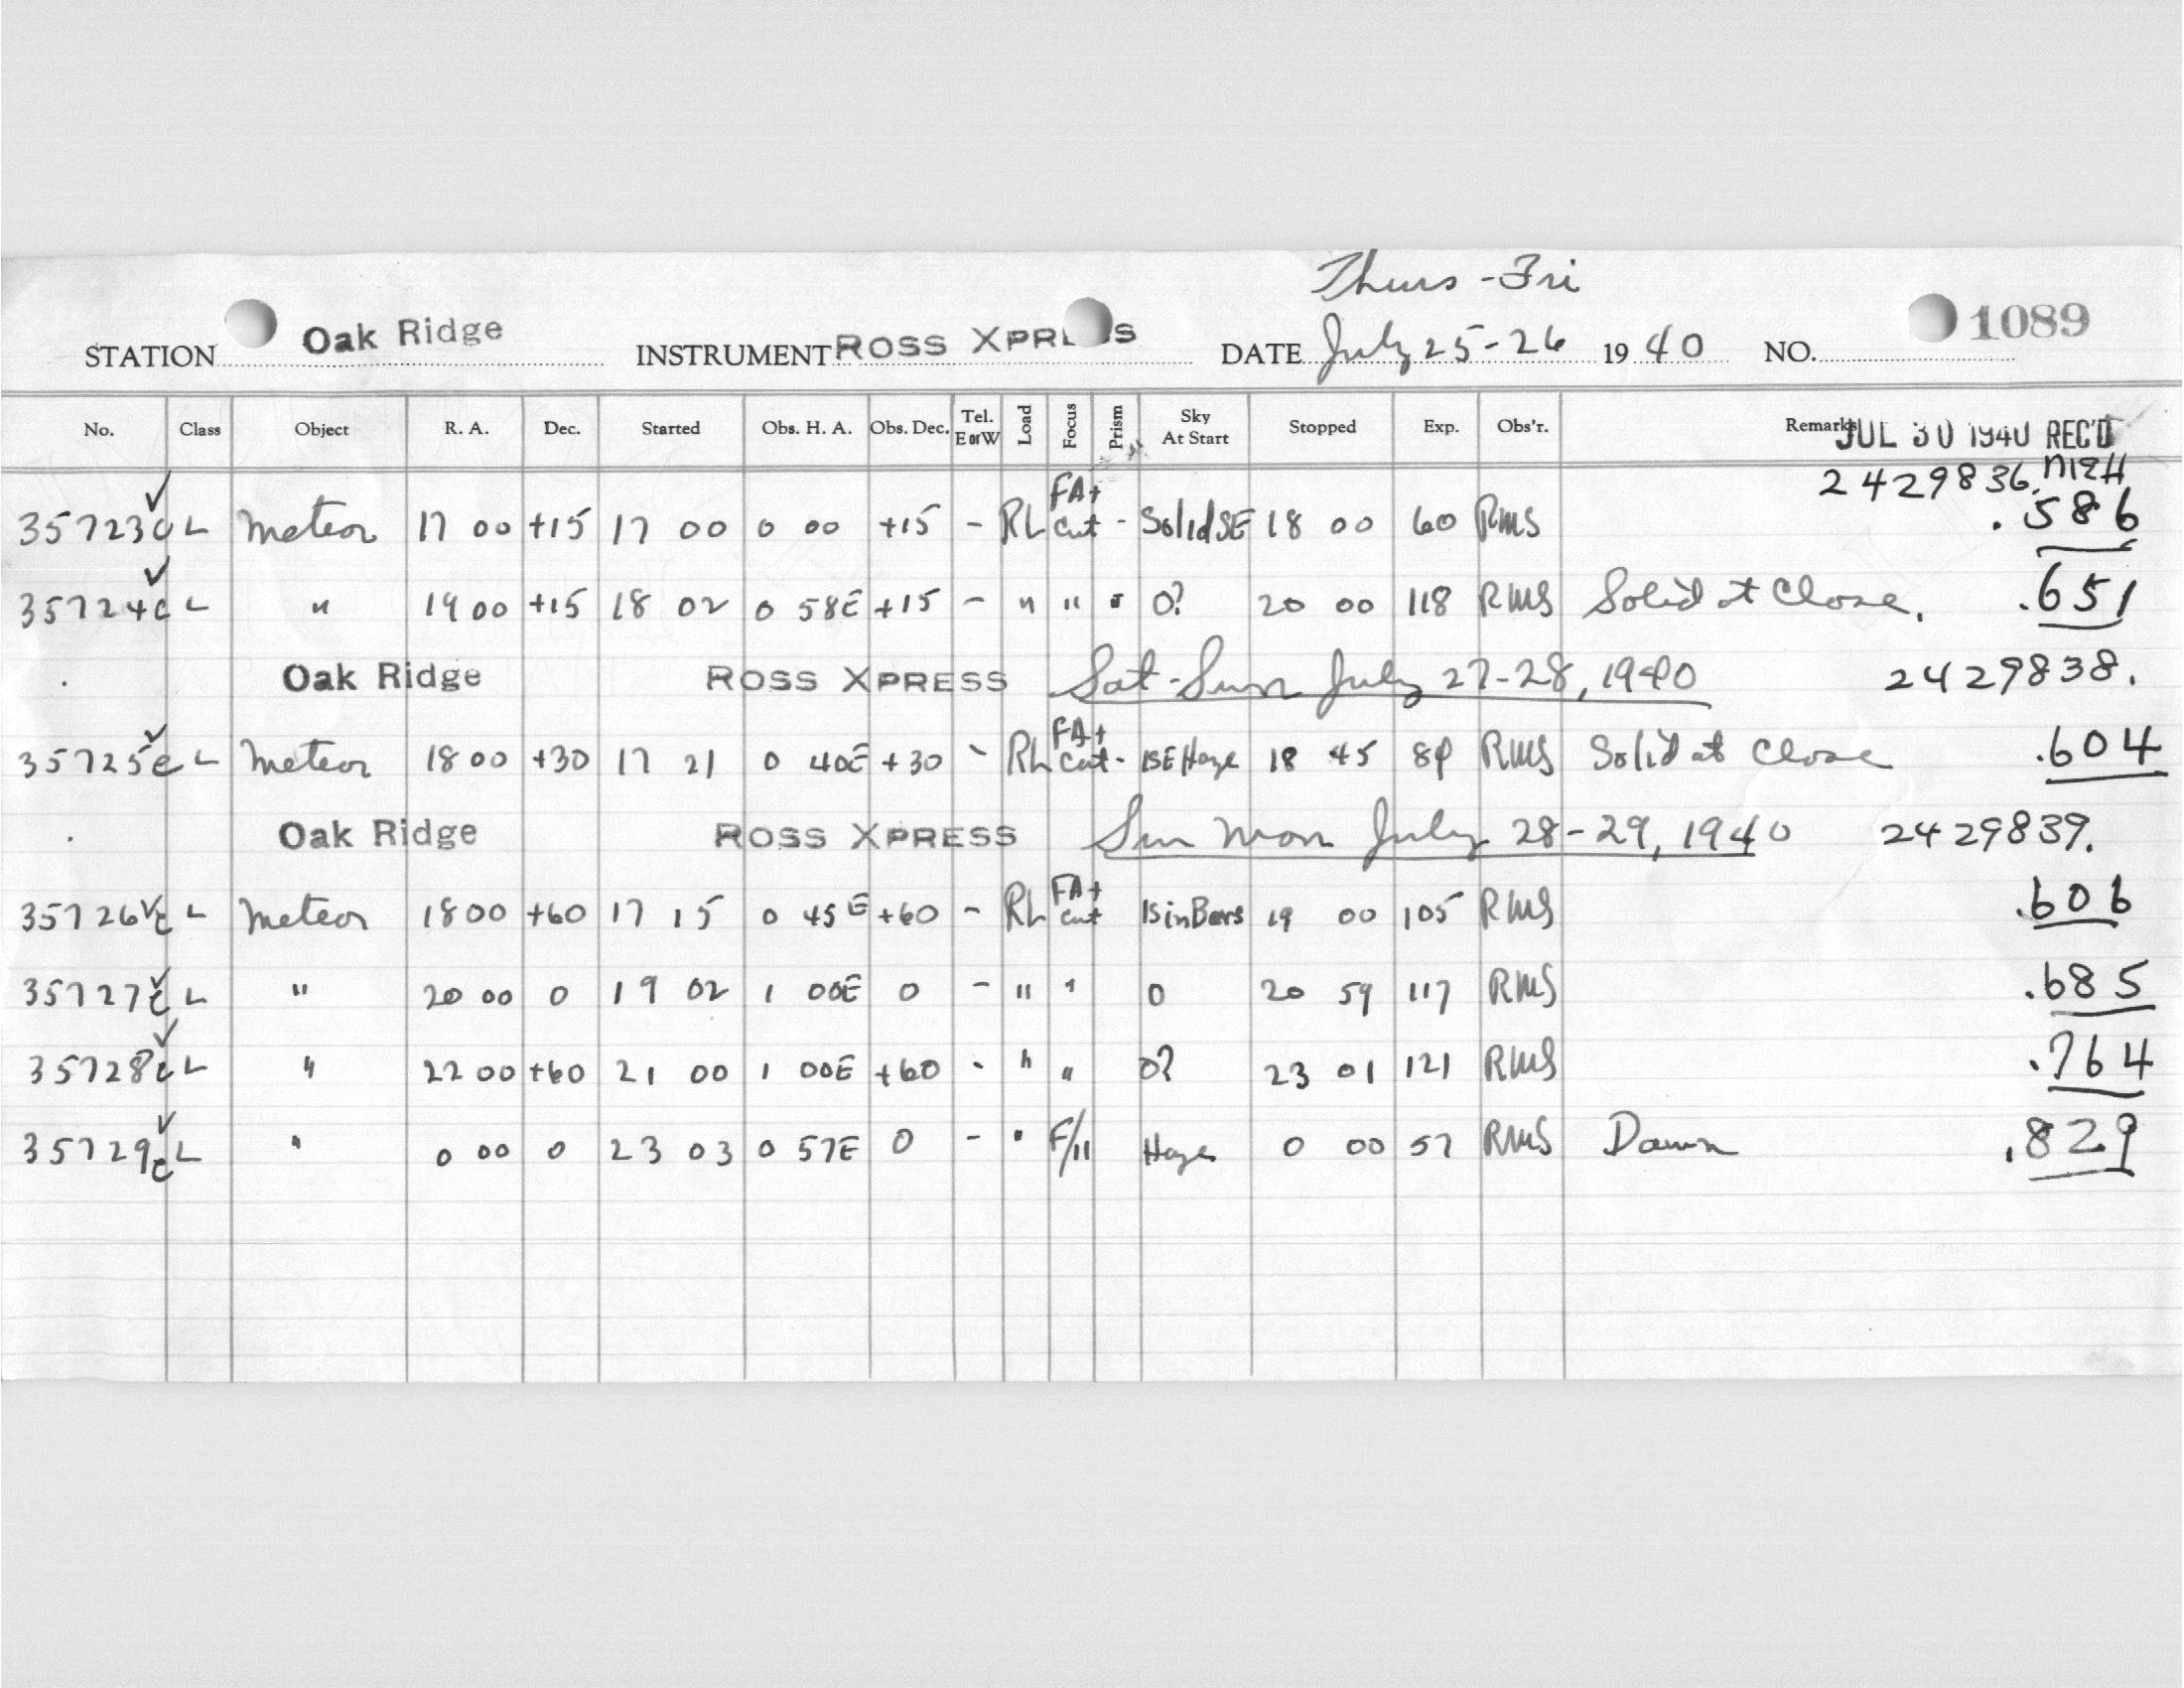 Thurs - Fri
STATION Oak Ridge INSTRUMENT ROSS XPRESS DATE July 25-26 1940 NO. 1089
No. Class Object R. A. Dec. Started Obs. H. A. Obs. Dec. Tel. E or W Load Focus Prism Sky At Start Stopped Exp. Obs'r. Remarks JUL 30 1940 REC'D
2429836.
35723c L Meteor 17 00 +15 17 00 0 00 +15 - RL FA+ Cut - Solid SE 18 00 60 RMS .586
35724c L " 19 00 +15 18 02 0 58E +15 - " " " 0? 20 00 118 RMS Solid at Close. .651
Oak Ridge ROSS XPRESS Sat-Sun July 27-28, 1940 2429838.
35725c L Meteor 18 00 +30 17 21 0 40E +30 - RL FA+ Cut - Haze 18 45 84 RMS Solid at Close .604
Oak Ridge ROSS XPRESS Sun Mon July 28-29, 1940 2429839.
35726c L Meteor 18 00 +60 17 15 0 45E +60 - RL FA+ Cut 19 00 105 RMS .606
35727c L " 20 00 0 19 02 1 00E 0 - " " 0 20 59 117 RMS .685
35728c L " 22 00 +60 21 00 1 00E +60 - " " 0? 23 01 121 RMS .764
35729c L " 0 00 0 23 03 0 57E 0 - " F/11 Haze 0 00 57 RMS Dawn .829